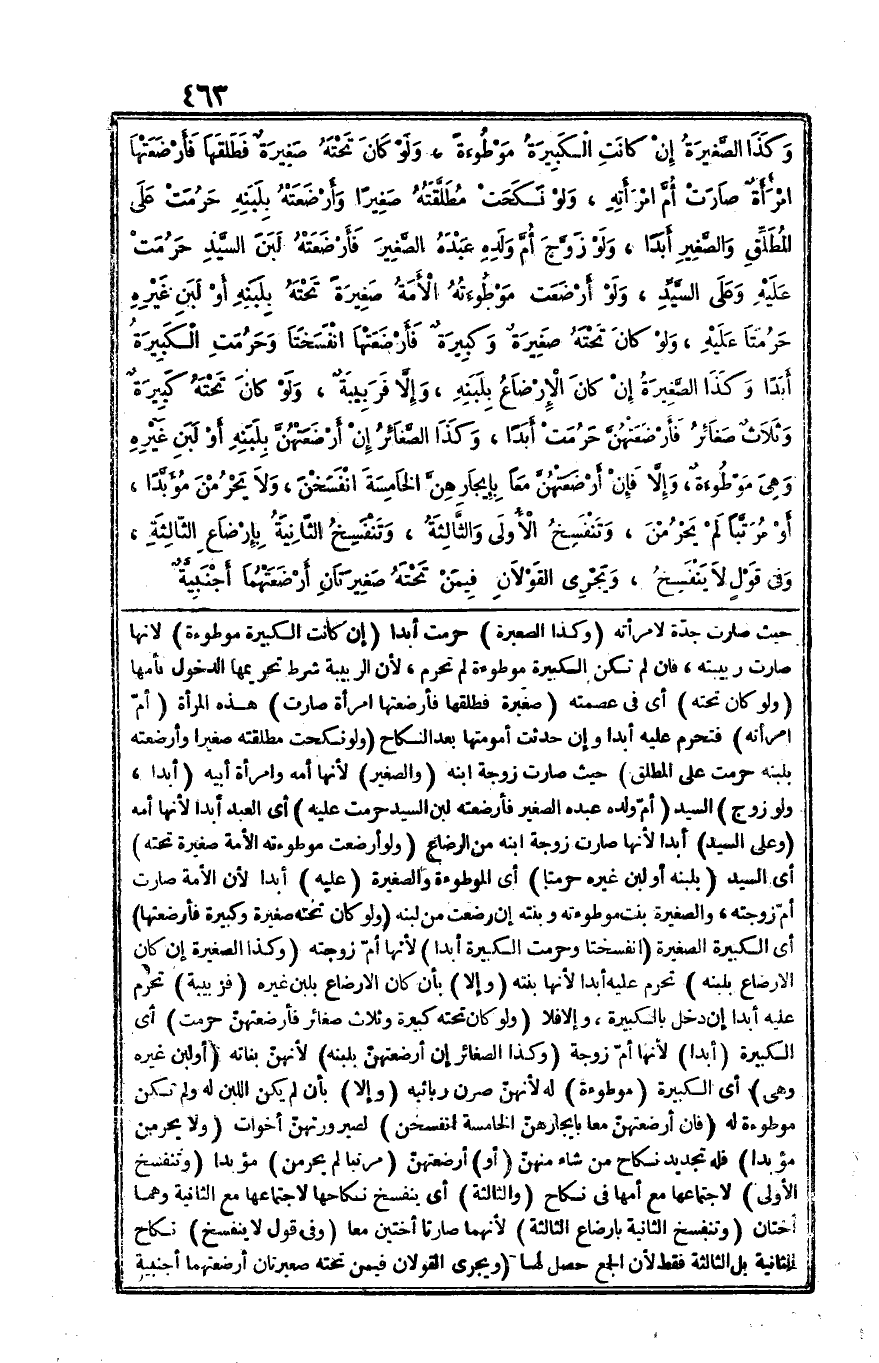 ٤٦٣
وَكَذَا الصَّغِيرَةُ إِنْ كَانَتِ الْكَبِيرَةُ مَوْطُوءَةً ، وَلَوْ كَانَ تَحْتَهُ صَغِيرَةٌ فَطَلَّقَهَا فَأَرْضَعَتْهَا
امْرَأَةٌ صَارَتْ أُمَّ امْرَأَتِهِ ، وَلَوْ نَكَحَتْ مُطَلَّقَتُهُ صَغِيرًا وَأَرْضَعَتْهُ بِلَبَنِهِ حَرُمَتْ عَلَى
الْمُطَلِّقِ وَالصَّغِيرِ أَبَدًا ، وَلَوْ زَوَّجَ أُمَّ وَلَدِهِ عَبْدَهُ الصَّغِيرَ فَأَرْضَعَتْهُ لَبَنَ السَّيِّدِ حَرُمَتْ
عَلَيْهِ وَعَلَى السَّيِّدِ ، وَلَوْ أَرْضَعَت مَوْطُوءَتُهُ الْأَمَةُ صَغِيرَةً تَحْتَهُ بِلَبَنِهِ أَوْ لَبَنِ غَيْرِهِ
حَرُمَتَا عَلَيْهِ ، وَلَوْ كَانَ تَحْتَهُ صَغِيرَةٌ وَكَبِيرَةٌ فَأَرْضَعَتْهَا انْفَسَخَتَا وَحَرُمَتِ الْكَبِيرَةُ
أَبَدًا وَكَذَا الصَّغِيرَةُ إِنْ كَانَ الْإِرْضَاعُ بِلَبَنِهِ ، وَإِلَّا فَرَبِيبَةٌ ، وَلَوْ كَانَ تَحْتَهُ كَبِيرَةٌ
وَثَلَاثُ صَغَائِرُ فَأَرْضَعَتْهُنَّ حَرُمَتْ أَبَدًا ، وَكَذَا الصَّغَائِرُ إِنْ أَرْضَعَتْهُنَّ بِلَبَنِهِ أَوْ لَبَنِ غَيْرِهِ
وَهِيَ مَوْطُوءَةٌ ، وَإِلَّا فَإِنْ أَرْضَعَتْهُنَّ مَعًا بِإِيجَارِهِنَّ الْخَامِسَةَ انْفَسَخْنَ ، وَلَا يَحْرُمْنَ مُؤَبَّدًا ،
أَوْ مُرَتَّبًا لَمْ يَحْرُمْنَ ، وَتَنْفَسِخُ الْأُولَى وَالثَّالِثَةُ ، وَتَنْفَسِخُ الثَّانِيَةُ بِإِرْضَاعِ الثَّالِثَةِ ،
وَفِى قَوْلٍ لَا يَنْفَسِخُ ، وَيَجْرِى الْقَوْلَانِ فِيمَنْ تَحْتَهُ صَغِيرَتَانِ أَرْضَعَتْهُمَا أَجْنَبِيَّةٌ
حيث صارت جدّة لامرأته (وكذا الصغيرة) حرمت أبدا (إن كانت الكبيرة موطوءة) لانها
صارت ربيبته ، فان لم تكن الكبيرة موطوءة لم تحرم ، لأن الربيبة شرط تحريمها الدخول بأمها
(ولو كان تحته) أى فى عصمته (صغيرة فطلقها فأرضعتها امرأة صارت) هذه المرأة (أمّ
امرأته) فتحرم عليه أبدا وإن حدثت أمومتها بعد النكاح (ولو نكحت مطلقته صغيرا وأرضعته
بلبنه حرمت على المطلق) حيث صارت زوجة ابنه (والصغير) لأنها أمه وامرأة أبيه (أبدا ،
ولو زوج) السيد (أمّ ولده عبده الصغير فأرضعته لبن السيد حرمت عليه) أى العبد أبدا لأنها أمه
(وعلى السيد) أبدا لأنها صارت زوجة ابنه من الرضاع (ولو أرضعت موطوءته الأمة صغيرة تحته)
أى السيد (بلبنه أو لبن غيره حرمتا) أى الموطوءة والصغيرة (عليه) أبدا لأن الأمة صارت
أمّ زوجته ، والصغيرة بنت موطوءته وبنته إن رضعت من لبنه (ولو كان تحته صغيرة وكبيرة فأرضعتها)
أى الكبيرة الصغيرة (انفسختا وحرمت الكبيرة أبدا) لأنها أمّ زوجته (وكذا الصغيرة إن كان
الارضاع بلبنه) تحرم عليه أبدا لأنها بنته (وإلا) بأن كان الارضاع بلبن غيره (فربيبة) تحرم
عليه أبدا إن دخل بالكبيرة ، وإلا فلا (ولو كان تحته كبيرة وثلاث صغائر فأرضعتهنّ حرمت) أى
الكبيرة (أبدا) لأنها أمّ زوجة (وكذا الصغائر إن أرضعتهنّ بلبنه) لأنهنّ بناته (أو لبن غيره
وهى) أى الكبيرة (موطوءة) له لأنهنّ صرن ربائبه (وإلا) بأن لم يكن اللبن له ولم تكن
موطوءة له (فان أرضعتهنّ معا بايجارهنّ الخامسة انفسخن) لصيرورتهنّ أخوات (ولا يحرمن
مؤبدا) فله تجديد نكاح من شاء منهنّ (أو) أرضعتهنّ (مرتبا لم يحرمن) مؤبدا (وتنفسخ
الأولى) لاجتماعها مع أمها فى نكاح (والثالثة) أى ينفسخ نكاحها لاجتماعها مع الثانية وهما
أختان (وتنفسخ الثانية بارضاع الثالثة) لأنهما صارتا أختين معا (وفى قول لا ينفسخ) نكاح
الثانية بل الثالثة فقط لأن الجمع حصل بها (ويجرى القولان فيمن تحته صغيرتان أرضعتهما أجنبية